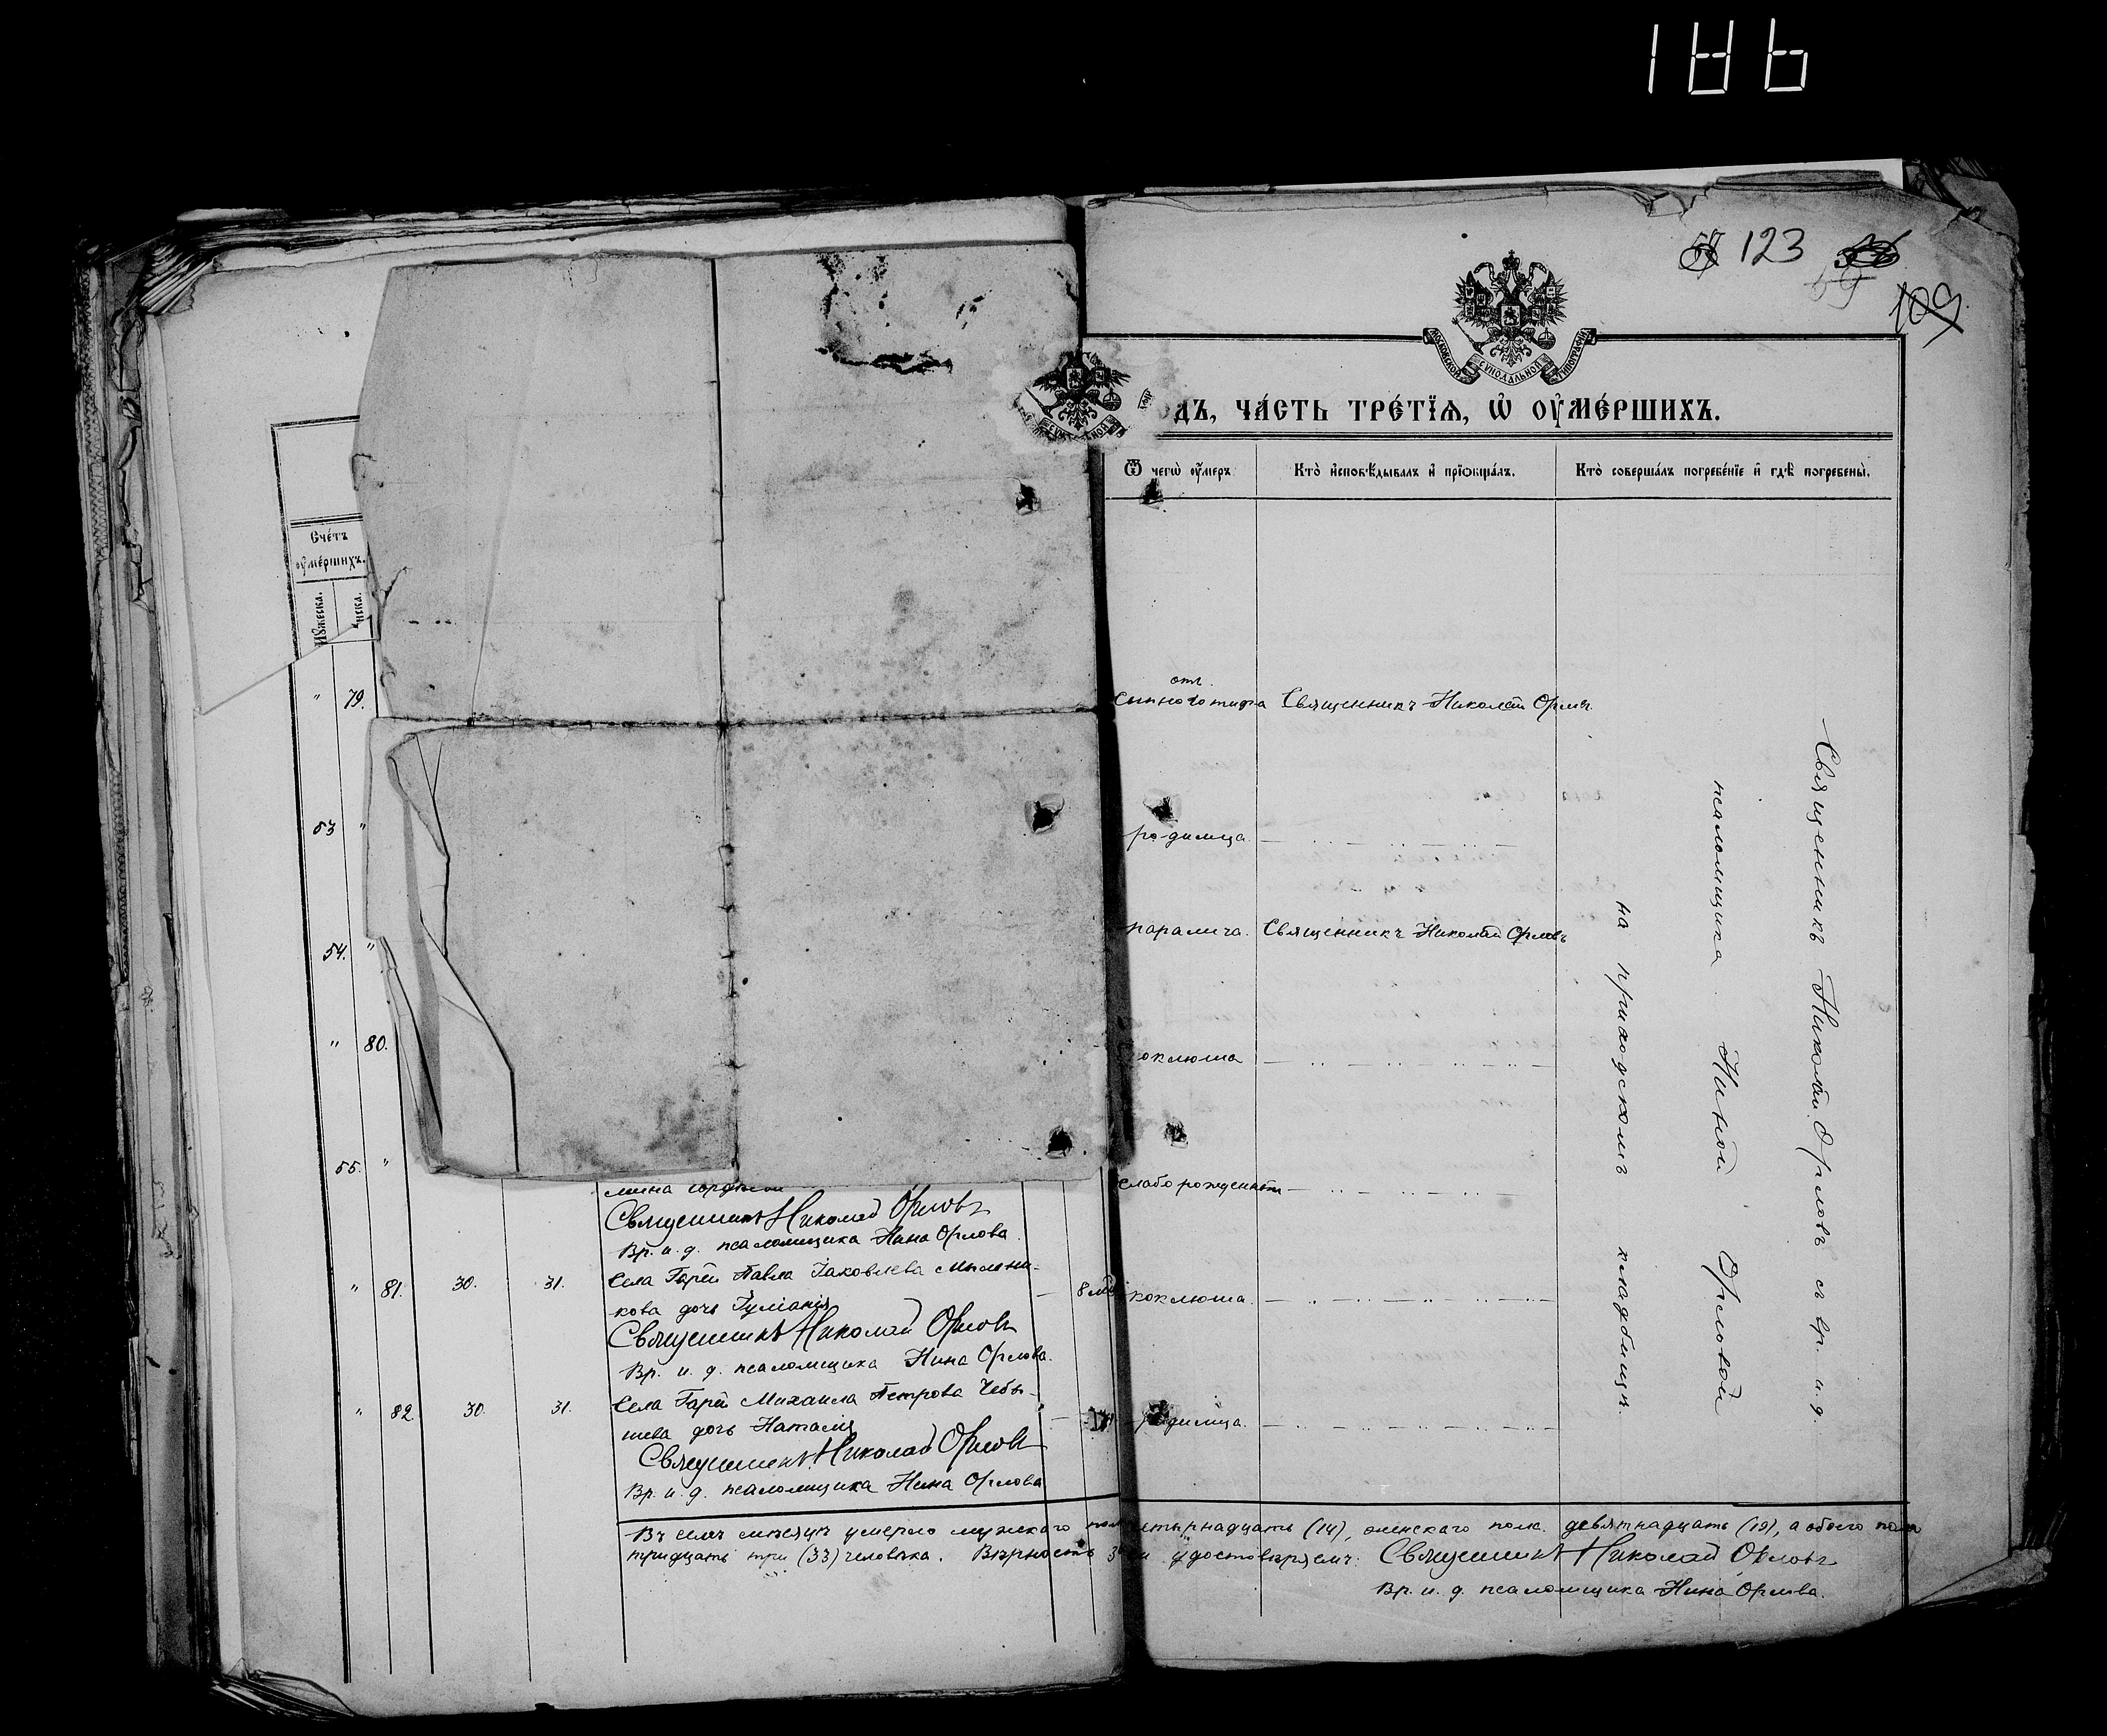 186
123
59
109
МОСКОВСКОЙ СѴНОДАЛЬНОЙ ТИПОГРАФІИ
дъ, ча́сть тре́тїѧ, ѡ҆ оу҆ме́ршихъ.
Счётъ оу҆ме́ршихъ.
Мꙋ́жеска.
нска.
Ѿ чегѡ̀ оу҆́меръ
Кто̀ и҆сповѣ́дывалъ и҆ прїѡбща́лъ.
Кто̀ соверша́лъ погребе́нїе и҆ гдѣ̀ погребены̀.
" 79.
отъ
сыпного тифа Священникъ Николай Орловъ
53 "
родимца — .. — .. — .. —
54. "
паралича. Священникъ Николай Орловъ
" 80.
оклюша — .. — .. — .. — .. —
55. "
слабо рожденности — .. — .. — .. —
Священникъ Николай Орловъ
Вр. и. д. псаломщика Нина Орлова.
" 81. 30. 31. Села Гарей Павла Іаковлева Мыльни-
кова дочь Іуліанія — 8 мѣс
коклюша. — .. — .. — .. — .. —
Священникъ Николай Орловъ
Вр. и. д. псаломщика Нина Орлова.
" 82. 30. 31. Села Гарей Михаила Петрова Чебы-
шева дочь Наталія —
родимца. — .. — .. — .. — .. —
Священникъ Николай Орловъ
Вр. и. д. псаломщика Нина Орлова
Священникъ Николай Орловъ съ вр. и. д.
псаломщика Ниной Орловой
на приходскомъ кладбищѣ.
Въ семъ мѣсяцѣ умерло мужского пола четырнадцать (14), женскаго пола девятнадцать (19), а обоего пола
тридцать три (33) человѣка. Вѣрность удостовѣряемъ: Священникъ Николай Орловъ
Вр. и. д. псаломщика Нина Орлова.